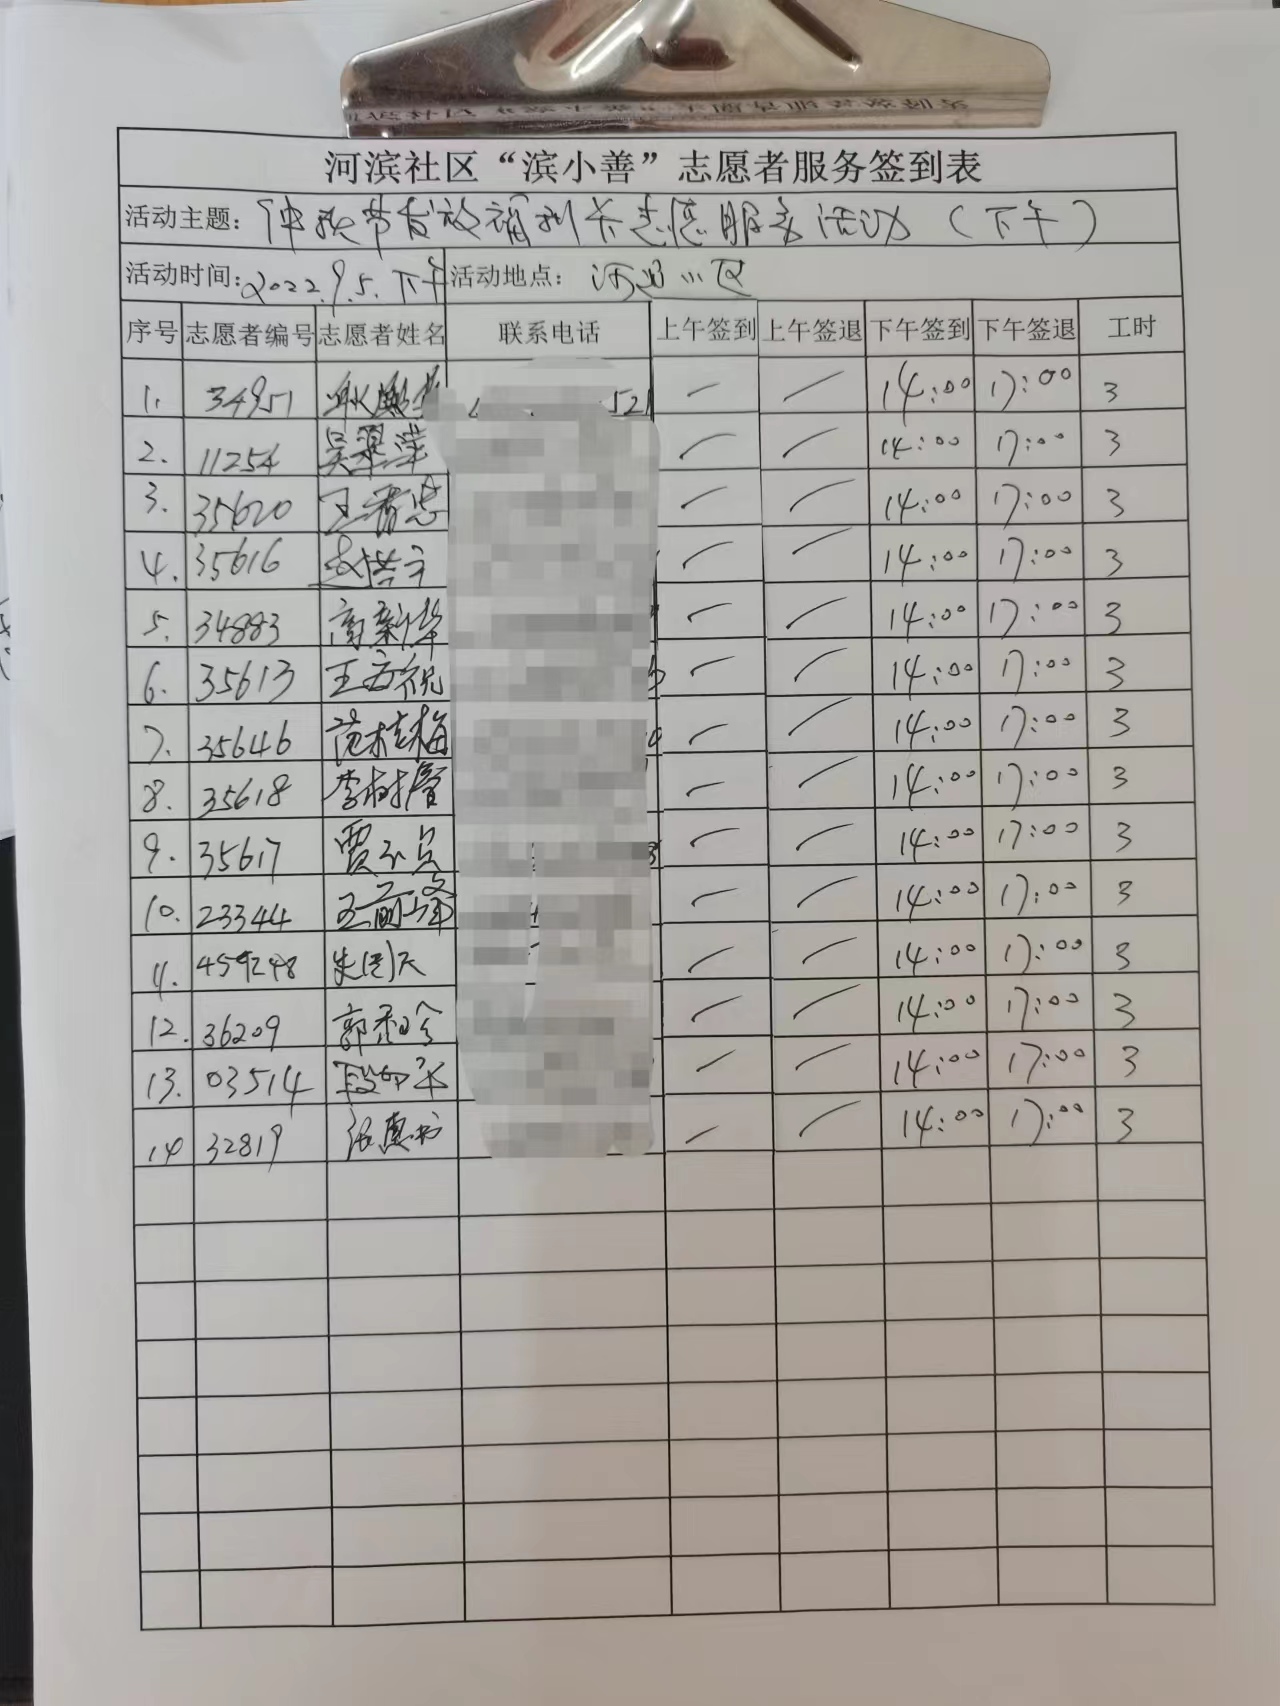 河滨社区“滨小善”志愿者服务签到表
活动主题: 仲秋节发放福利卡志愿服务活动（下午）
活动时间: 2022.9.5.下午 活动地点: 小区
序号 志愿者编号 志愿者姓名 联系电话 上午签到 上午签退 下午签到 下午签退 工时
1. 34951 521 — — 14:00 17:00 3
2. 11254 吴翠萍 — — 14:00 17:00 3
3. 35620 王 — — 14:00 17:00 3
4. 35616 — — 14:00 17:00 3
5. 34883 高新华 — — 14:00 17:00 3
6. 35613 王 — — 14:00 17:00 3
7. 35646 范桂梅 — — 14:00 17:00 3
8. 35618 李树 — — 14:00 17:00 3
9. 35617 贾 — — 14:00 17:00 3
10. 23344 — — 14:00 17:00 3
11. 459248 朱 — — 14:00 17:00 3
12. 36209 郭 — — 14:00 17:00 3
13. 03514 段 — — 14:00 17:00 3
14 32819 — — 14:00 17:00 3